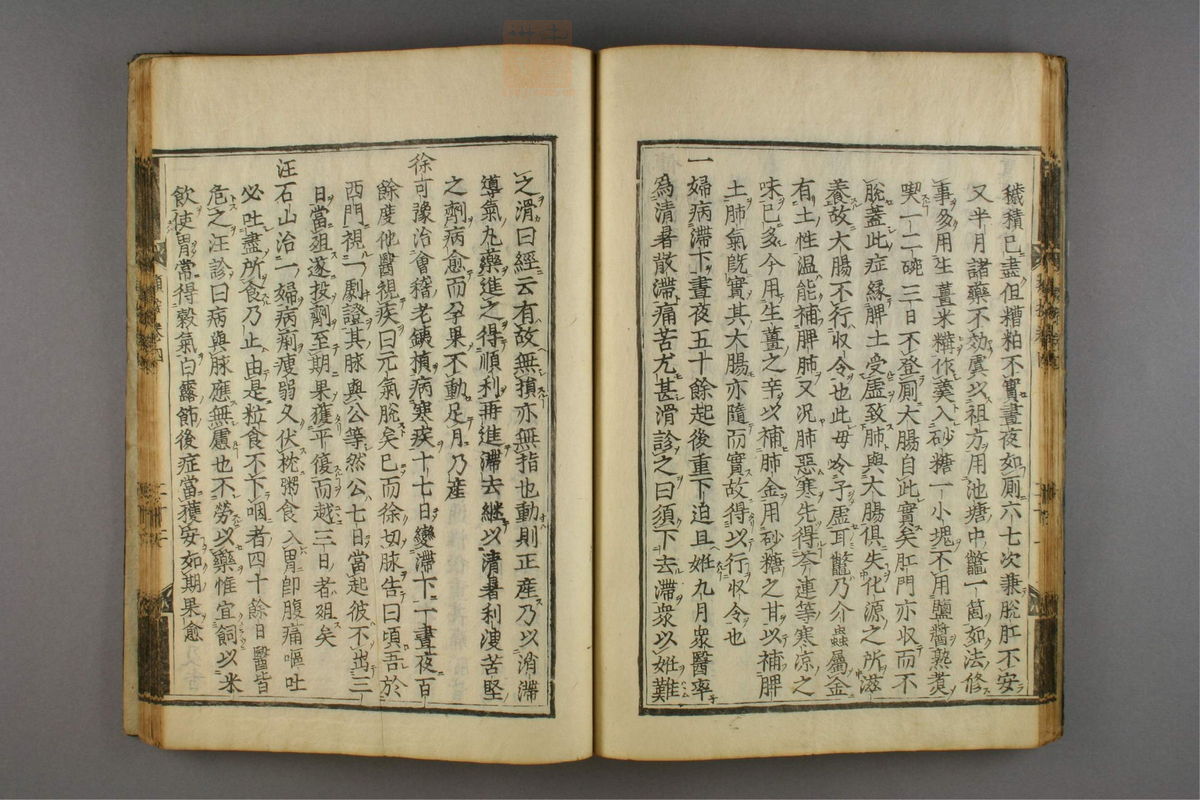 穢積已盡但糟粕不實晝夜如厠六七次兼脫肛不安
又半月諸藥不効虞以祖方用池塘中鼈一箇如法修
事多用生薑米糝作羹入砂糖一小塊不用鹽醬熟煑
喫一二碗三日不登厠大腸自此實矣肛門亦収而不
脫蓋此症縁脾土受虛致肺與大腸俱失化源之所滋
養故大腸不行収令也此母令子虛耳鼈乃介蟲屬金
有土性温能補脾肺又况肺惡寒先得芩連等寒凉之
味已多今用生薑之辛以補肺金用砂糖之甘以補脾
土肺氣旣實其大腸亦隨而實故得以行収令也
一婦病滯下晝夜五十餘起後重下迫且姙九月衆醫率
爲清暑散滯痛苦尤甚滑診之曰須下去滯衆以姙難
之滑曰經云有故無損亦無損也動則正産乃以消滯
導氣丸藥進之得順利再進滯去継以清暑利溲苦堅
之劑病愈而孕果不動足月乃産
徐可豫治會稽老銕楨病寒疾十七日變滯下一晝夜百
餘度他醫視疾曰元氣脫矣已而徐切脉告曰頃吾於
西門視一劇證其脉與公等然公七日當起彼不出三
日當殂遂投劑至期果獲平復而越三日者殂矣
汪石山治一婦病痢瘦弱久伏枕粥食入胃卽腹痛嘔吐
必吐盡所食乃止由是粒食不下咽者四十餘日醫皆
危之汪診曰病與脉應無慮也不勞以藥惟宜飼以米
飲使胃常得穀氣白露節後症當獲安如期果愈